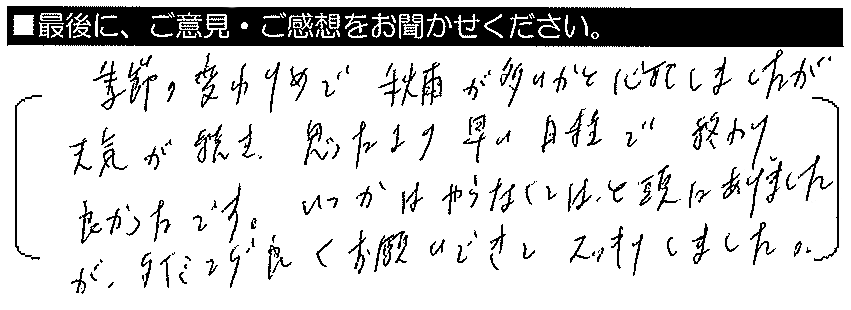 ■最後に、ご意見・ご感想をお聞かせください。
季節の変わりめで 秋雨が多いかと心配しましたが
天気が続き、思ったより早い日程で 終わり
良かったです。いつかはやらなくては、と頭にありました
が、タイミング良くお願いできて スッキリしました。